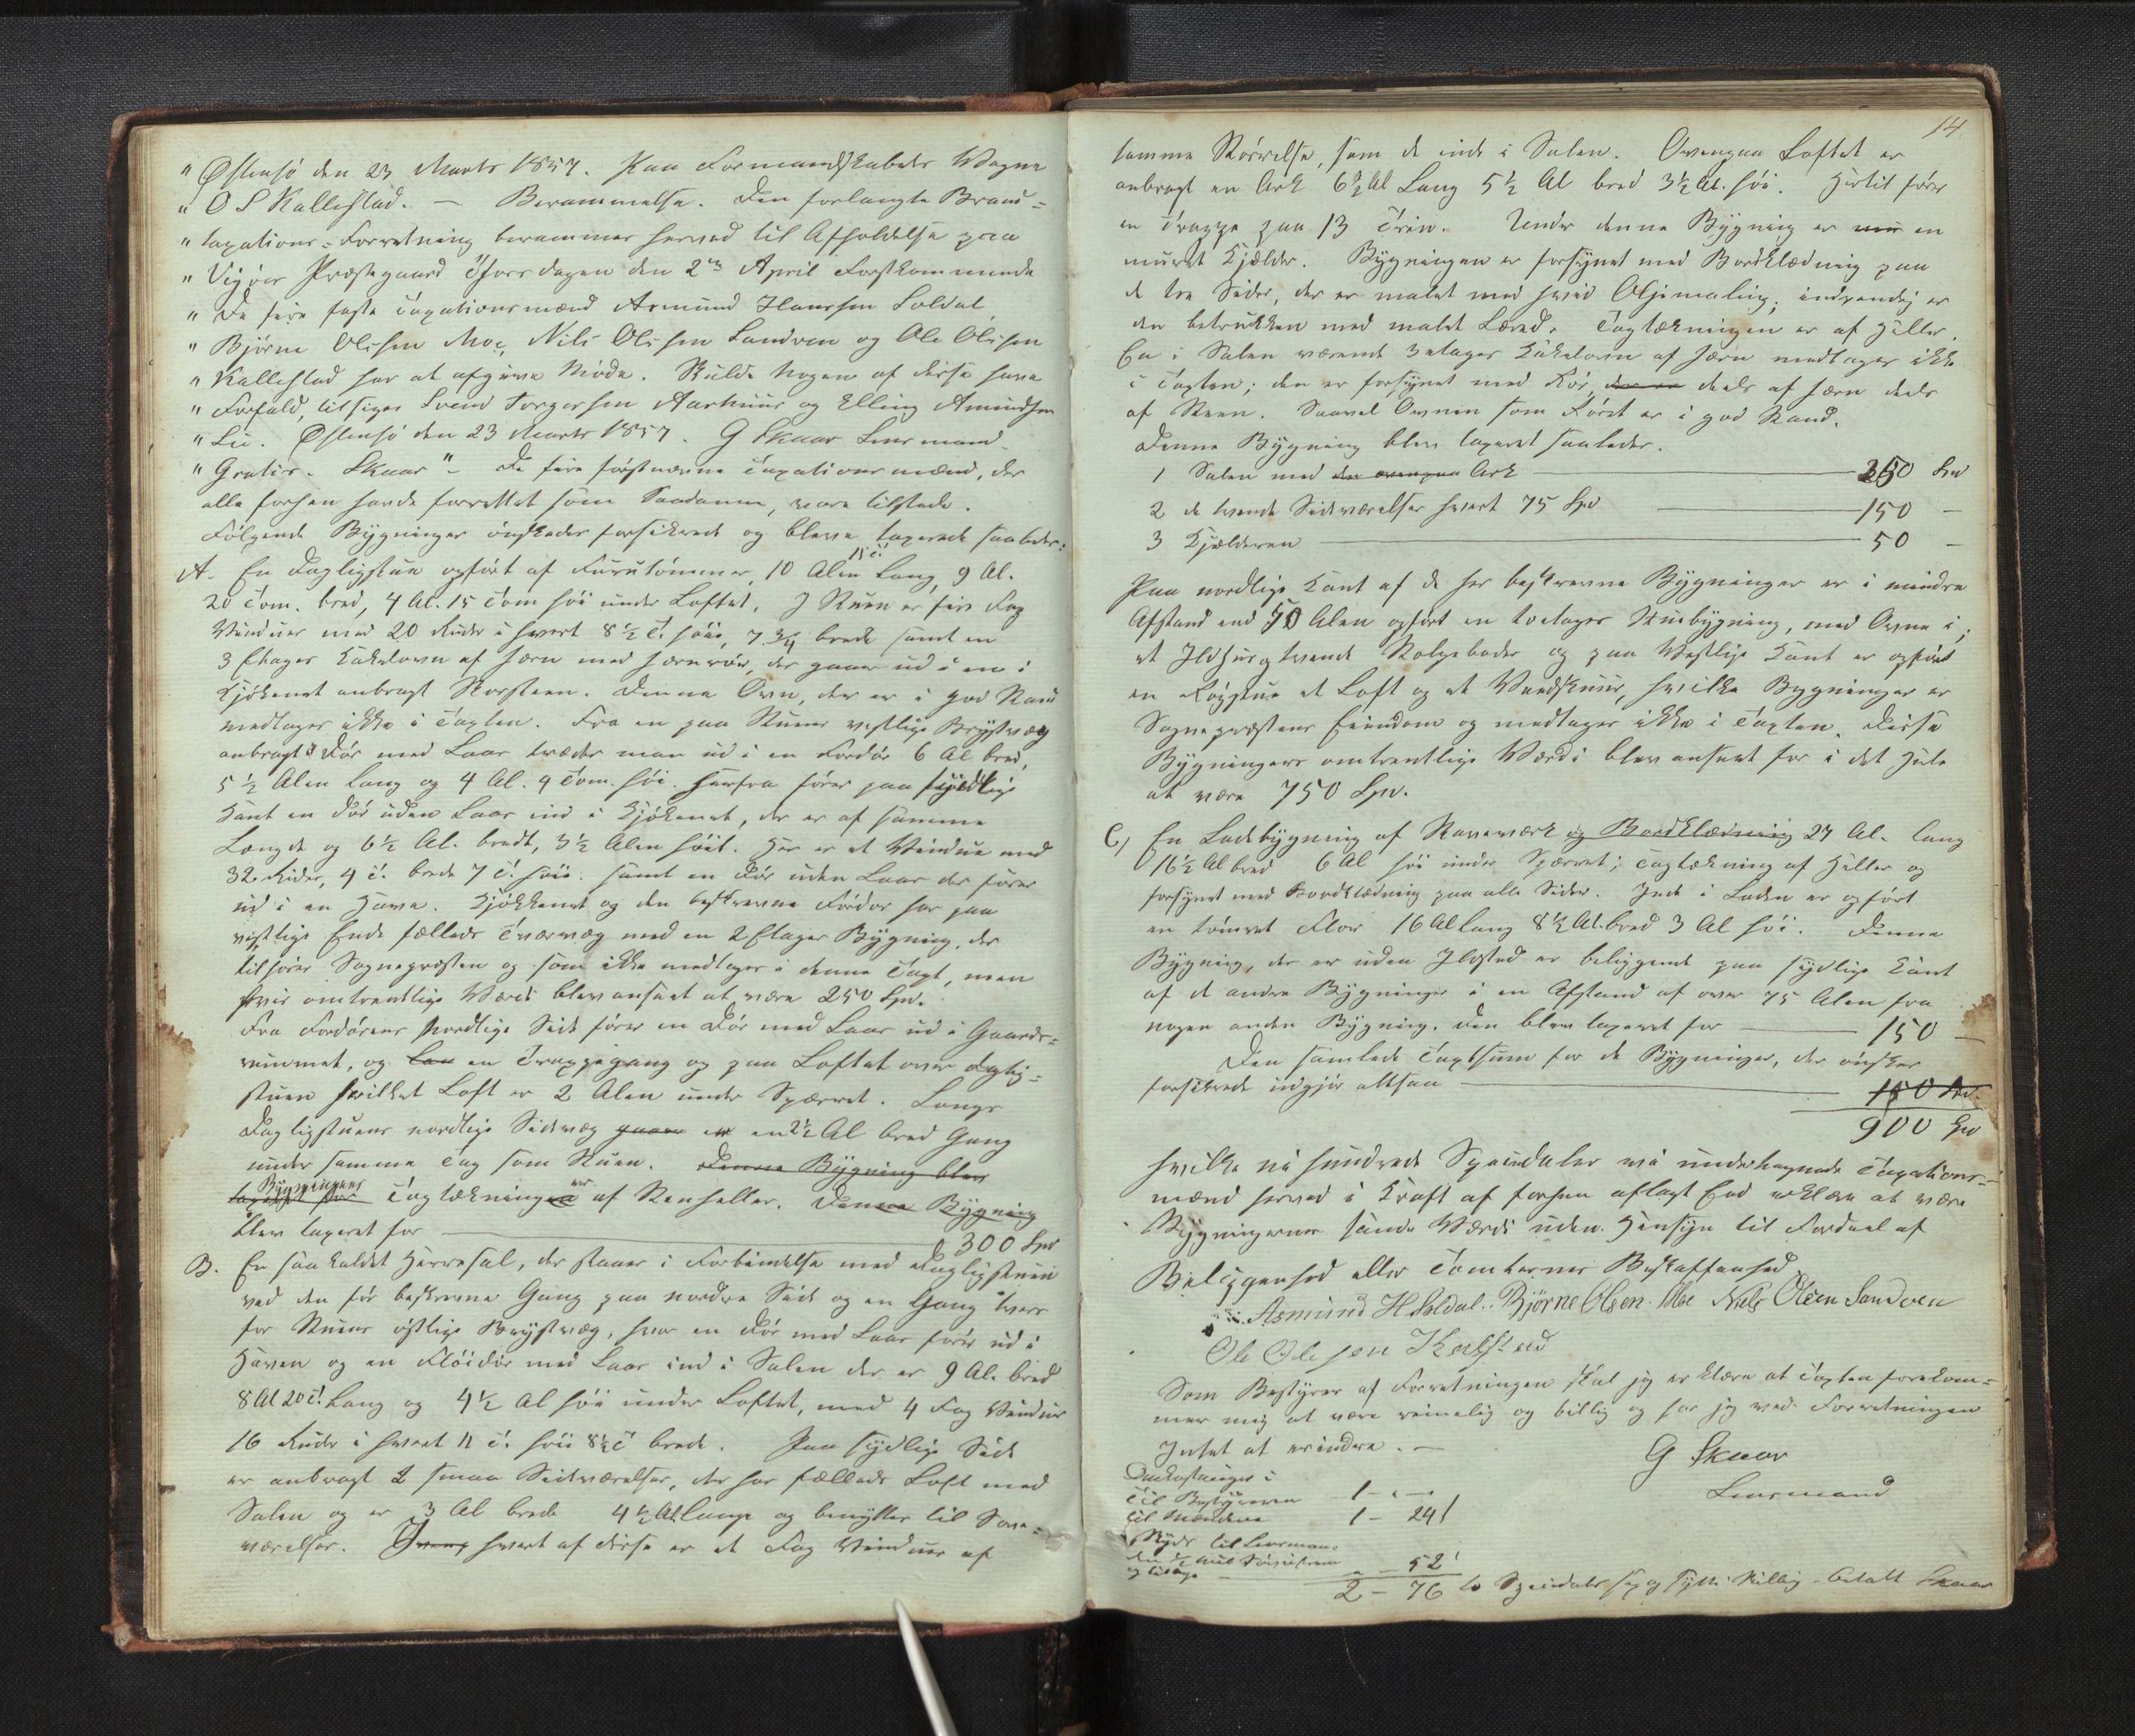 " Østensø den 23 Marts 1857. Paa Formandskabets Vegne
" O S Kallestad. — Berammelse. Den forlangte Brand=
" taxations=Forretning berammes herved til Afholdelse paa
" Vigøer Præstegaard Thorsdagen den 2den April førstkommende
" De fire faste Taxationsmænd Asmund Hansen Soldal,
" Bjørne Olsen Moe, Nils Olsen Sandven og Ole Olsen
" Kallestad har at afgive Møde. Skulde Nogen af disse have
" Forfald, tilsiges Svend Torgersen Aarhuus og Elling Amundsen
" Lie. Østensø den 23 Marts 1857. G Skaar Lensmand
" Gratis. Skaar" – De fire førstnævnte Taxationsmænd, der
alle forhen havde forrettet som Saadanne, vare tilstede.
Følgende Bygninger ønskedes forsikrede og bleve taxerede saaledes:
A. En Dagligstue opført af Furutømmer, 10 Alen 15 T. Lang, 9 Al.
20 Tom. bred, 4 Al. 15 Tom høi under Loftet. I Stuen er fire Fag
Vinduer med 20 Ruder i hvert 8½ T. høie, 7¾ brede samt en
3 Etages Kakelovn af Jern med Jernrør, der gaar ud i en i
Kjøkenet anbragt Skorsteen. Denne Ovn, der er i god Stand
medtages ikke i Taxten. Fra en paa Stuens vestlige Brystvæg
anbragt Dør med Laas træder man ud i en Fordør 6 Al bred,
5½ Alen lang og 4 Al. 9 Tom. høi. Herfra fører paa sydlige
Kant en Dør uden Laas ind i Kjøkenet, der er af samme
Længde og 6½ Al. bredt, 3½ Alen høit. Her er et Vindue med
32 Ruder, 4 T. brede 7 T. høie. samt en Dør uden Laas der fører
ud i en Have. Kjøkkenet og den beskrevne Fordør har paa
vestlige Ende fælleds Tværvæg med en 2 Etages Bygning, der
tilhører Sognepræsten og som ikke medtages i denne Taxt, men
hvis omtrentlige Værdi blev anseet at være 250 Spd.
Fra Fordørens Nordlige Side fører en Dør med Laas ud i Gaards=
rummet, og en Trappegang op paa Loftet over Daglig=
stuen hvilket Loft er 2 Alen under Spærret. Langs
Dagligstuens nordlige Sidevæg gaar er en 2½ Al bred Gang
under samme Tag som Stuen. Denne Bygning blev
taxeret for Bygningens Tagtækning er af Steenheller. Denne Bygning
blev taxeret for — 300 Spd
B. En saa kaldet Herresal, der staaer i Forbindelse med Dagligstuen
ved den før beskrevne Gang paa nordre Side og en Gang tvers
for Stuens østlige Brystvæg, hvor en Dør med Laas fører ud i
Haven og en Fløidør med Laas ind i Salen der er 9 Al. bred
8 Al 20 T. Lang og 4½ Al høi under Loftet, med 4 Fag Vinduer
16 Ruder i hvert 11 T. høie 8½ T brede. Paa sydlige Side
er anbragt 2 smaa Sideværelser, der har fælleds Loft med
Salen og er 3 Al brede 4½ Al. lange og benyttes til Sove=
værelser. hvert af disse er et Fag Vinduer af
14.
samme Størrelse, som de inde i Salen. Ovenpaa Loftet er
anbragt en Ark 6½ Al Lang 5½ Al bred 3½ Al. høi. Hertil fører
en Trappe paa 13 Trin. Under denne Bygning er en
muret Kjælder. Bygningen er forsynet med Bordklædning paa
de tre Sider, der er malet med hvid Oljemaling; indvendig er
den betrukken med malet Lærred. Tagtækningen er af Heller.
En i Salen værende 3 etages Kakelovn af Jern medtages ikke
i Taxten; den er forsynet med Rør, der er deels af Jern deels
af Steen. Saavel Ovnen som Røret er i god Stand.
Denne Bygning blev taxeret saaledes.
1 Salen med den ovenpaa Ark — 250 Spd
2 de tvende Sideværelser hvert 75 Spd — 150 –
3 Kjælderen — 50 –
Paa nordlige Kant af de her beskrevne Bygninger er i mindre
Afstand end 50 Alen opført en toetages Stuebygning, med Ovne i;
et Ildhus og tvende Stolpeboder og paa Vestlige Kant er opført
en Røgstue et Loft og et Vandskuur, hvilke Bygninger er
Sognepræstens Eiendom og medtages ikke i Taxten. Disse
Bygningers omtrentlige Værdi blev anseet for i det Hele
at være 750 Spd.
C, En Ladebygning af Stavværk og Bordklædning 27 Al. lang
16½ Al bred 6 Al høi under Spærret; Tagtækning af Heller og
forsynet med Bordklædning paa alle Sider. Inde i Laden er opført
en tømret Flor 16 Al lang 8½ Al. bred 3 Al høi. Denne
Bygning, der er uden Ildsted er beliggende paa sydlige Kant
af de andre Bygninger i en Afstand af over 75 Alen fra
nogen anden Bygning. Den blev taxeret for — 150 –
Den samlede Taxtsum for de Bygninger, der ønskes
forsikrede udgjør altsaa — 150 Spd.
900 Spd
hvilke ni hundrede Speciedaler vi undertegnede Taxations=
mænd herved i Kraft af forhen aflagt Eed erklære at være
Bygningernes sande Værdi uden Hensyn til Fordeel af
Beliggenhed eller Tomternes Beskaffenhed
Asmund H Soldal. Bjørne Olsen Moe Niels Olsen Sandven
Ole Olesen Kalstad
Som Bestyrer af Forretningen skal jeg erklære at Taxten forekom=
mer mig at være rimelig og billig og har jeg ved Forretningen
Intet at erindre. —
G Skaar
Lensmand
Omkostninger:
Til Bestyreren 1 - " -
til Mændene 1 - 24
Skyds til Lensman=
den ½ Miil Søveis frem
og tilbage - - 52
2 - 76 to Speciedaler sex og sytti Skilling betalt Skaar